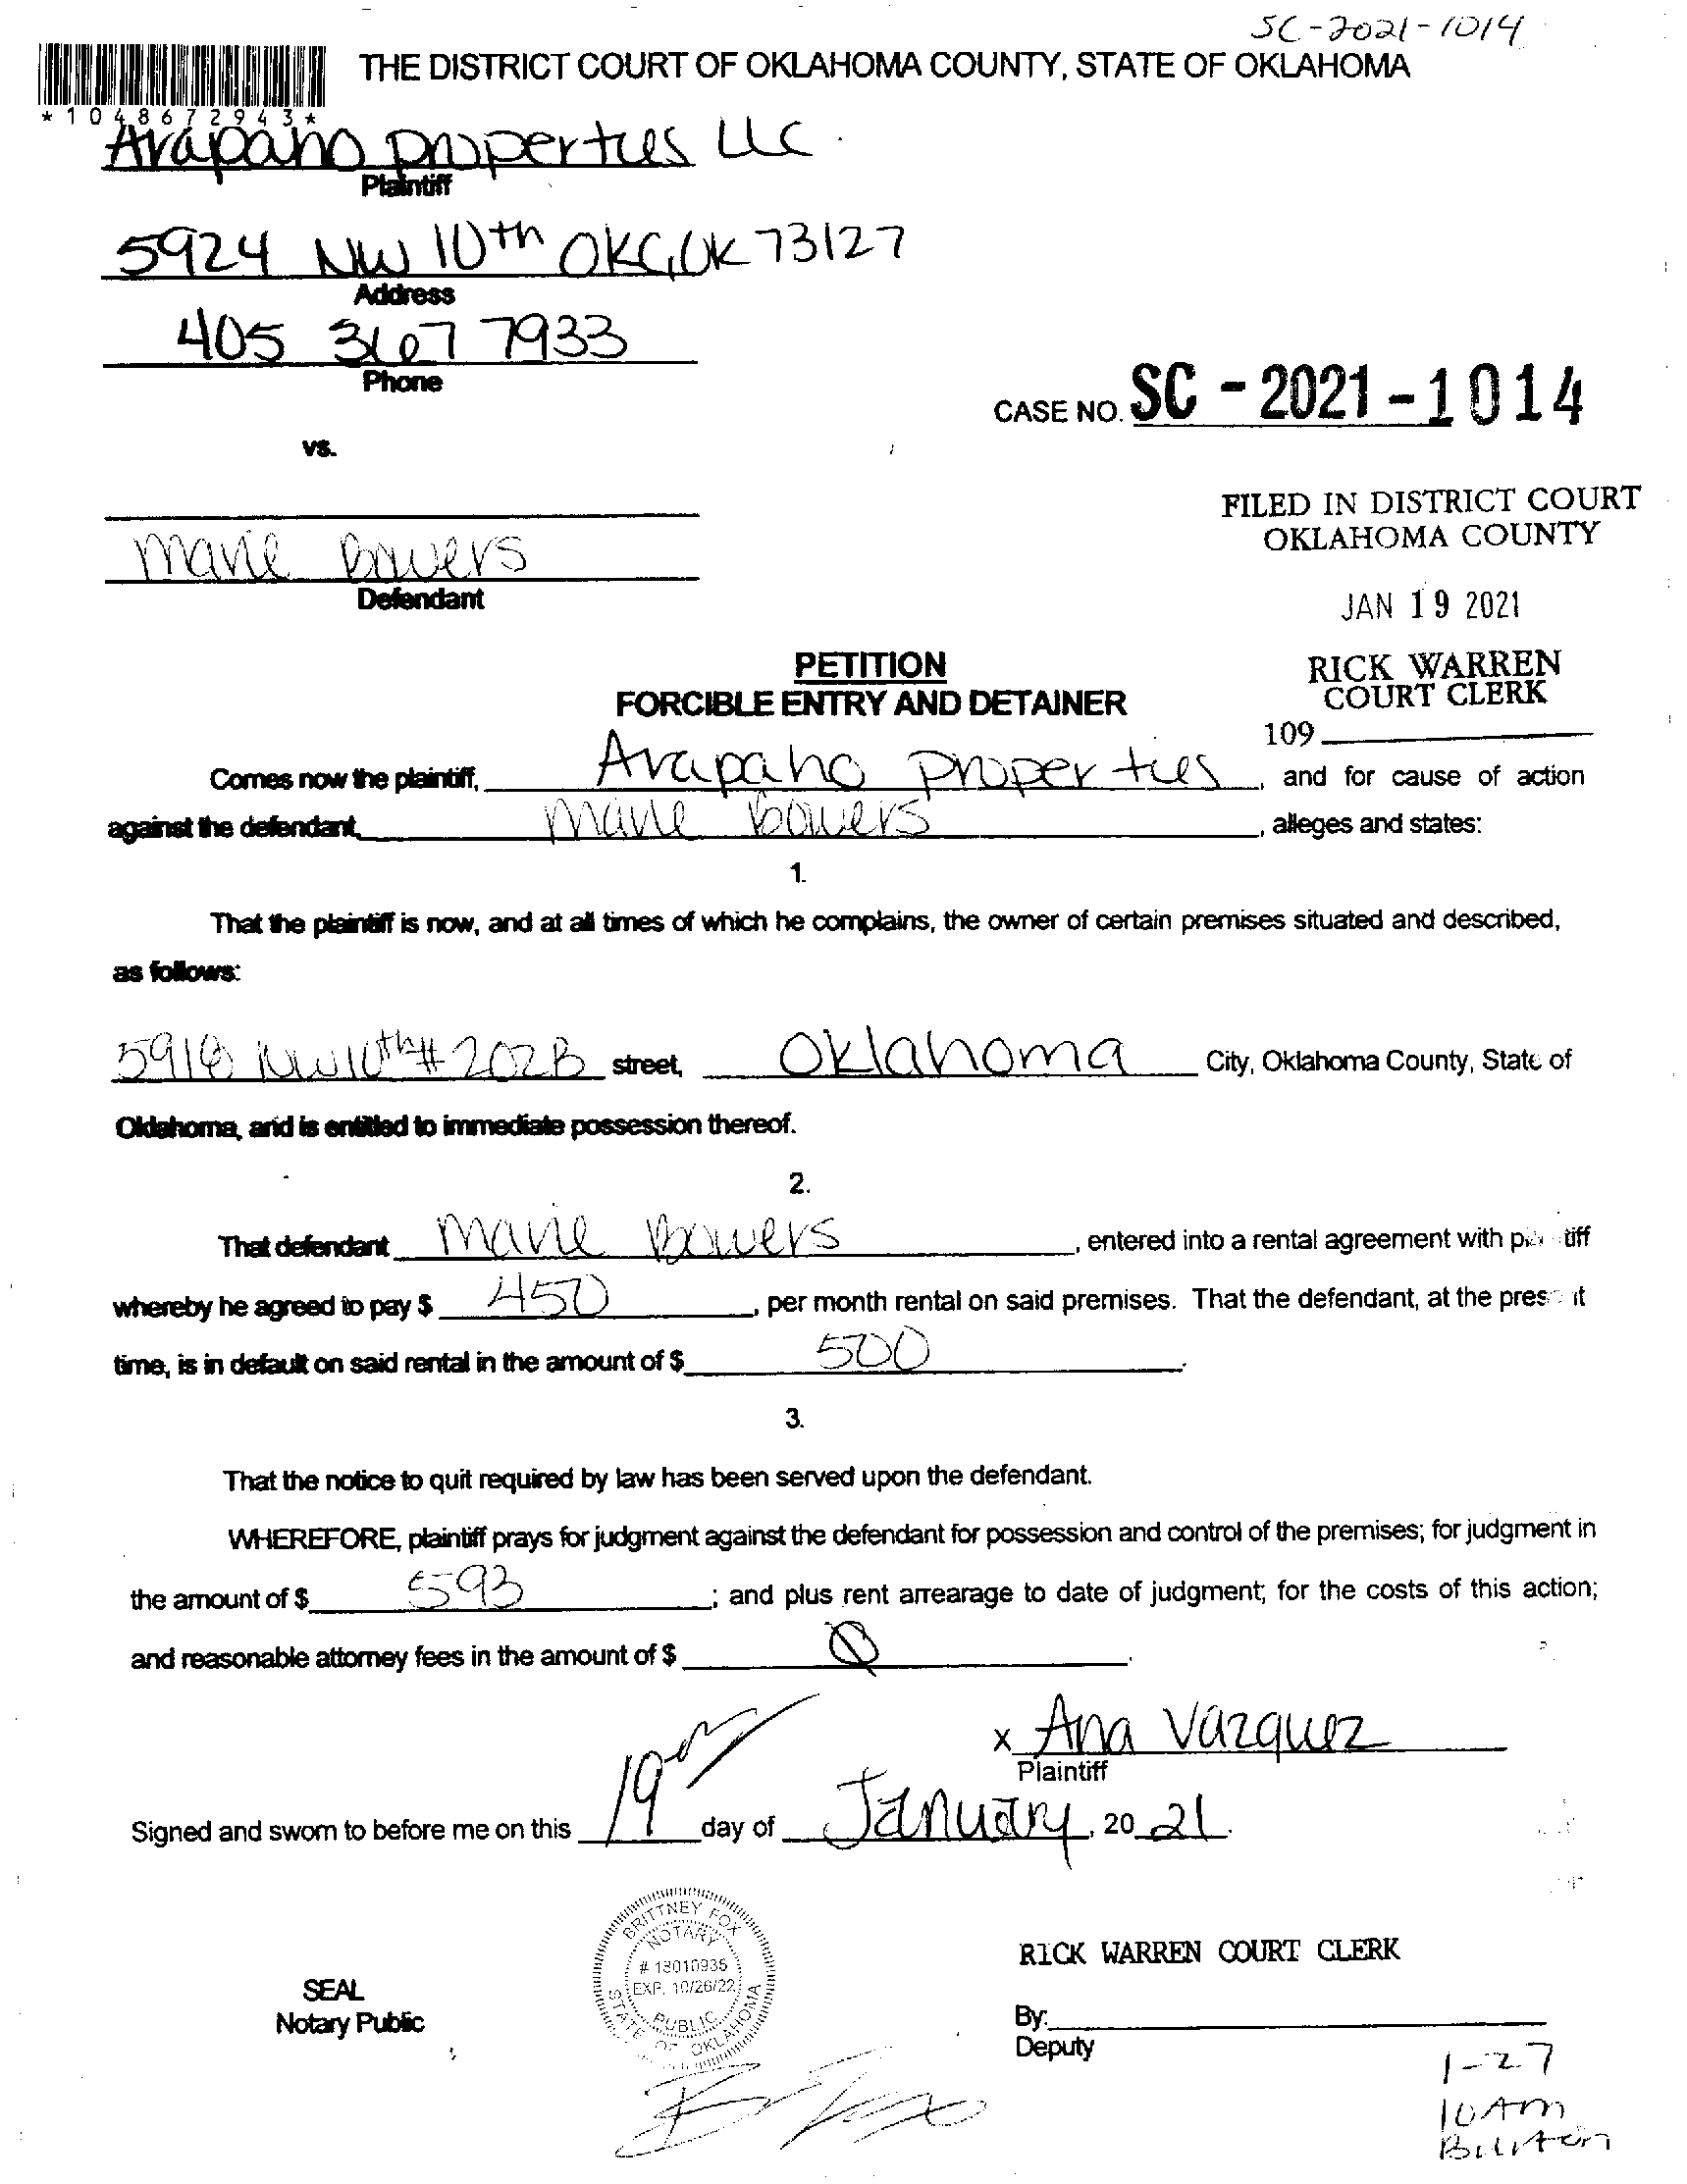 SC-2021-1014
THE DISTRICT COURT OF OKLAHOMA COUNTY, STATE OF OKLAHOMA
*1048672943*
Arapaho properties LLC
Plaintiff
5924 NW 10th OKC, OK 73127
Address
405 367 7933
Phone
CASE NO. SC - 2021 - 1014
vs.
FILED IN DISTRICT COURT
OKLAHOMA COUNTY
Marie Bowers
Defendant
JAN 19 2021
PETITION
FORCIBLE ENTRY AND DETAINER
RICK WARREN
COURT CLERK
109
Comes now the plaintiff, Arapaho properties, and for cause of action
against the defendant, Marie Bowers, alleges and states:
1.
That the plaintiff is now, and at all times of which he complains, the owner of certain premises situated and described,
as follows:
NW 10th # 202B street, Oklahoma City, Oklahoma County, State of
Oklahoma, and is entitled to immediate possession thereof.
2.
That defendant Marie Bowers, entered into a rental agreement with plaintiff
whereby he agreed to pay $ 450, per month rental on said premises. That the defendant, at the present
time, is in default on said rental in the amount of $ 500.
3.
That the notice to quit required by law has been served upon the defendant.
WHEREFORE, plaintiff prays for judgment against the defendant for possession and control of the premises; for judgment in
the amount of $ 593; and plus rent arrearage to date of judgment; for the costs of this action;
and reasonable attorney fees in the amount of $ Ø.
x Ana Vazquez
Plaintiff
Signed and sworn to before me on this 19 day of January, 2021.
BRITTNEY FOX
NOTARY
# 18010935
EXP. 10/26/22
PUBLIC
STATE OF OKLAHOMA
RICK WARREN COURT CLERK
SEAL
Notary Public
By:
Deputy
1-27
10AM